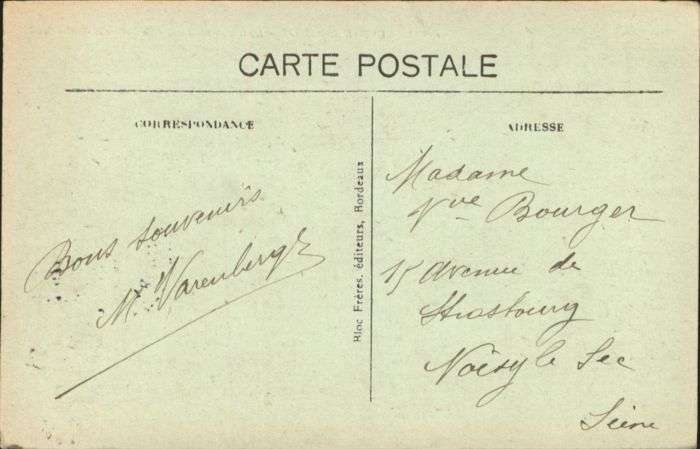 CARTE POSTALE
CORRESPONDANCE
ADRESSE
Bons souvenirs
M. Varenbergh
Bloc Frères, éditeurs, Bordeaux
Madame
Vve Bourger
15 Avenue de
Strasbourg
Noisy le Sec
Seine